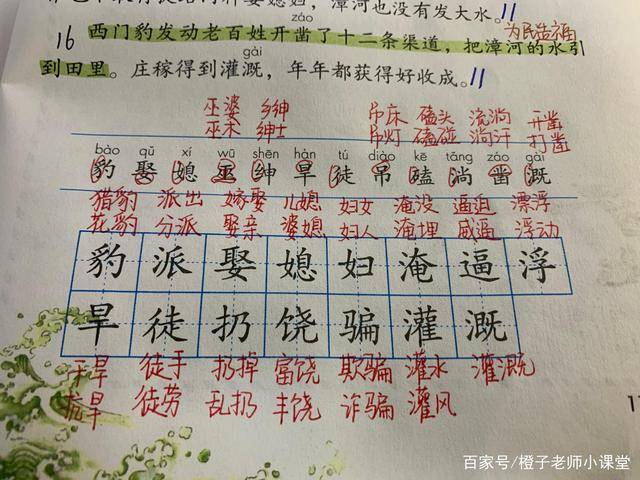 漳河也没有发大水。11
záo 为民造福
16 西门豹发动老百姓开凿了十二条渠道，把漳河的水引
gài
到田里。庄稼得到灌溉，年年都获得好收成。11
巫婆 乡绅 吊床 磕头 流淌 开凿
巫术 绅士 吊灯 磕碰 淌汗 打凿
bào qǔ xí wū shēn hàn tú diào kē tǎng záo gài
豹 娶 媳 巫 绅 旱 徒 吊 磕 淌 凿 溉
猎豹 派出 嫁娶 儿媳 妇女 淹没 逼迫 漂浮
花豹 分派 娶亲 婆媳 妇人 淹埋 威逼 浮动
豹 派 娶 媳 妇 淹 逼 浮
旱 徒 扔 饶 骗 灌 溉
干旱 徒手 扔掉 富饶 欺骗 灌水 灌溉
抗旱 徒劳 乱扔 丰饶 诈骗 灌风
百家号/橙子老师小课堂